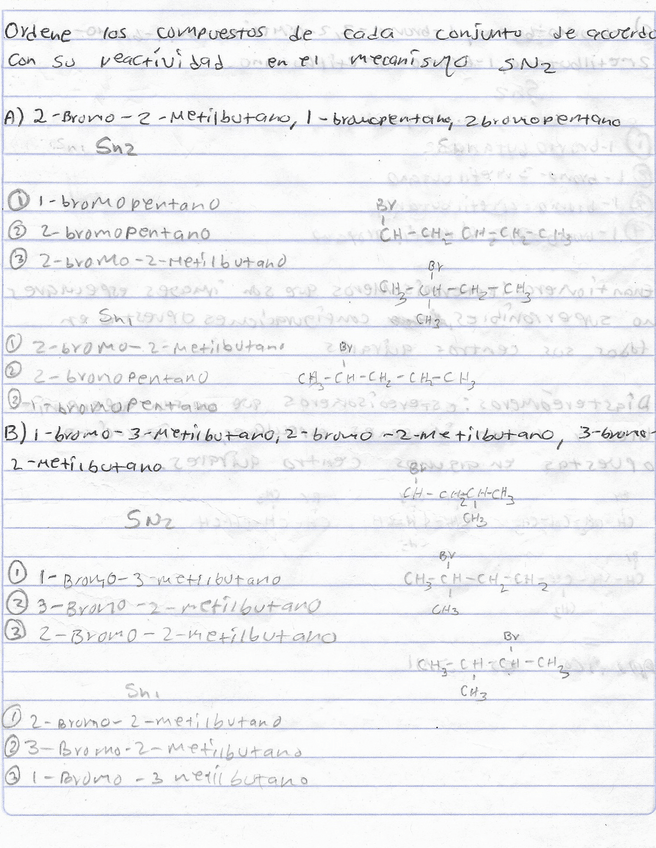 Ordene los compuestos de cada conjunto de acuerdo
con su reactividad en el mecanismo SN2
A) 2-Bromo-2-Metilbutano, 1-bromopentano, 2bromopentano
Sn2
① 1-bromopentano
Br
② 2-bromopentano
CH-CH2-CH2-CH2-CH3
③ 2-bromo-2-Metilbutano
Br
CH3-CH-CH2-CH3
CH3
Sn1
① 2-bromo-2-metilbutano
Br
② 2-bromopentano
CH3-CH-CH2-CH2-CH3
③ 1-bromopentano
B) 1-bromo-3-metilbutano, 2-bromo-2-metilbutano, 3-bromo-
2-metilbutano
Br
CH-CH2CH-CH3
CH3
SN2
Br
① 1-Bromo-3-metilbutano
CH3-CH-CH2-CH2
② 3-Bromo-2-metilbutano
CH3
③ 2-Bromo-2-metilbutano
Br
CH3-CH-CH-CH3
CH3
Sn1
① 2-Bromo-2-metilbutano
② 3-Bromo-2-metilbutano
③ 1-Bromo-3 metilbutano